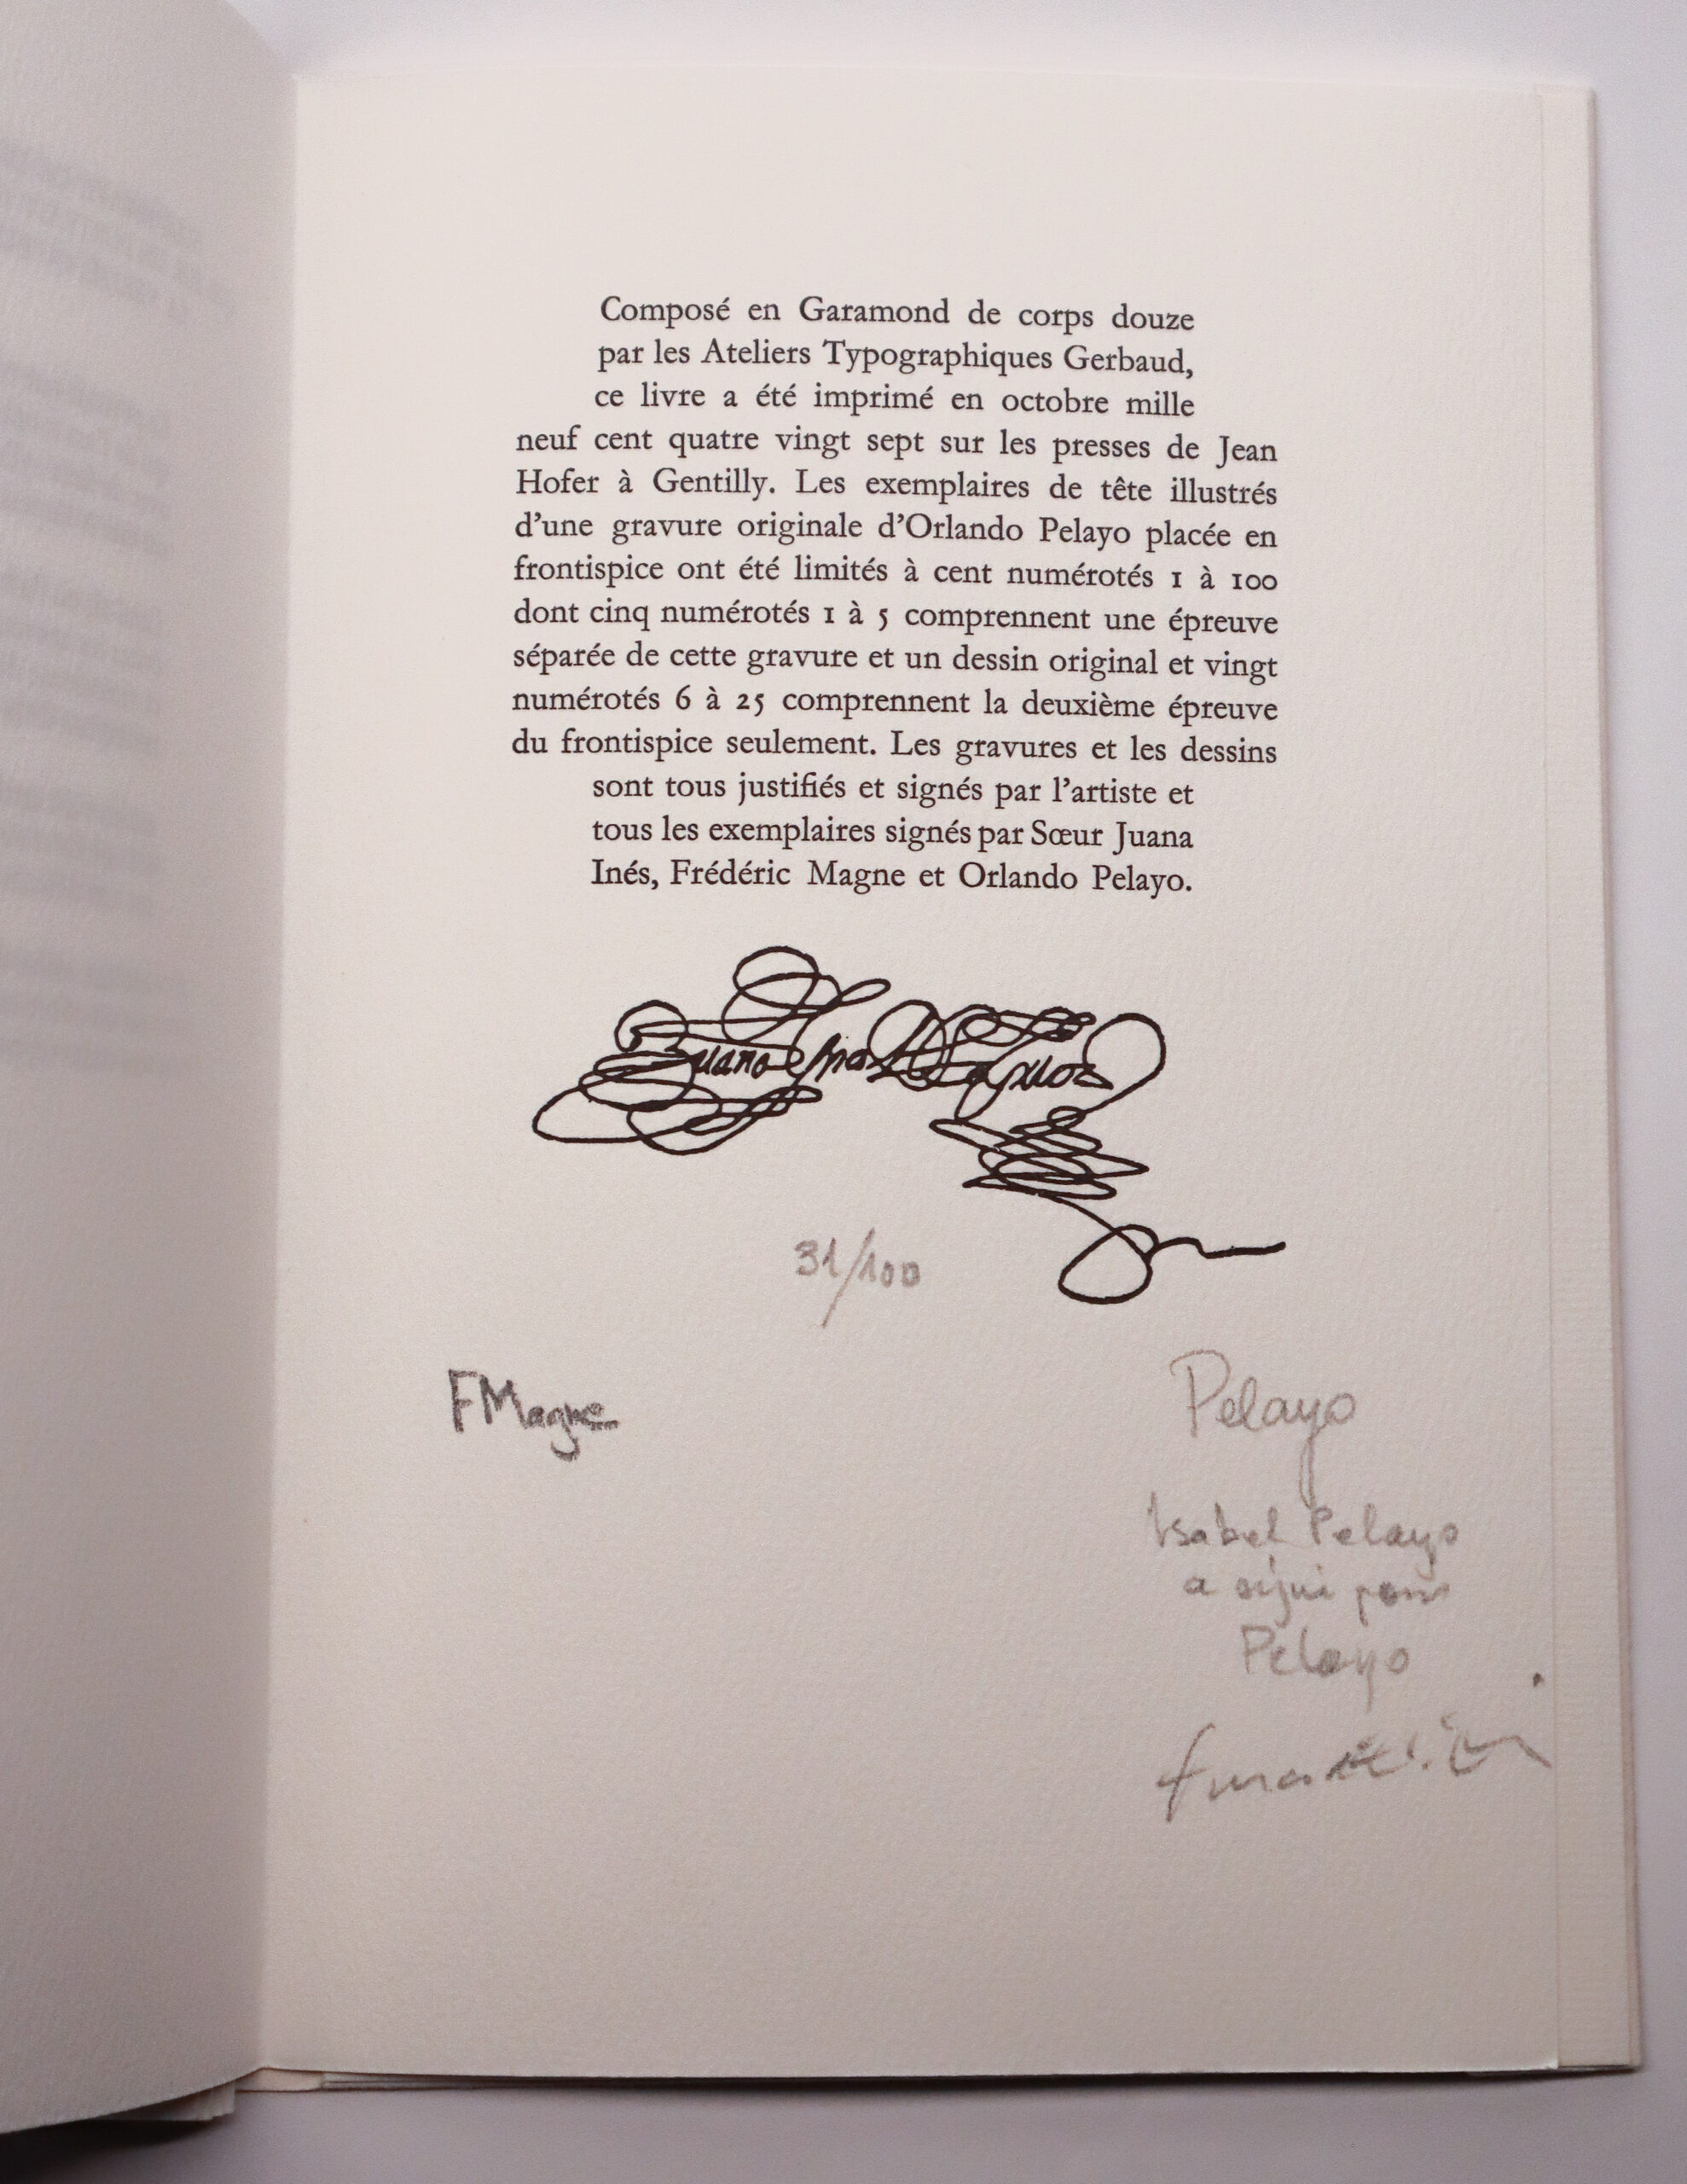 Composé en Garamond de corps douze
par les Ateliers Typographiques Gerbaud,
ce livre a été imprimé en octobre mille
neuf cent quatre vingt sept sur les presses de Jean
Hofer à Gentilly. Les exemplaires de tête illustrés
d’une gravure originale d’Orlando Pelayo placée en
frontispice ont été limités à cent numérotés 1 à 100
dont cinq numérotés 1 à 5 comprennent une épreuve
séparée de cette gravure et un dessin original et vingt
numérotés 6 à 25 comprennent la deuxième épreuve
du frontispice seulement. Les gravures et les dessins
sont tous justifiés et signés par l’artiste et
tous les exemplaires signés par Sœur Juana
Inés, Frédéric Magne et Orlando Pelayo.
Juana
31/100
FMagne
Pelayo
Isabel Pelayo
a signé pour
Pelayo